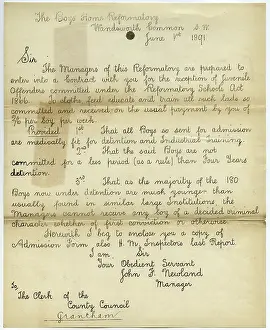 The Boys Home Reformatory
Wandsworth Common S.W.
June 1st 1891.
Sir
The Managers of this Reformatory are prepared to
enter into a Contract with you for the reception of Juvenile
Offenders committed under the Reformatory Schools Act
1866. To clothe feed educate and train all such lads so
committed and received on the usual payment by you of
2/6 per boy per week.
Provided 1st That all Boys so sent for admission
are medically fit for detention and Industrial training
2nd That the said Boys are not
committed for a less period (as a rule) than Four Years
detention.
3rd That as the majority of the 180
Boys now under detention are much younger than
usually found in similar large Institutions, the
Managers cannot receive any boy of a decided criminal
character whether of first conviction or otherwise.
Herewith I beg to enclose you a copy of
Admission Form also H. M. Inspectors last Report
I am Sir
Your Obedient Servant
John F. Newland
Manager
To
The Clerk of the
County Council
Grantham